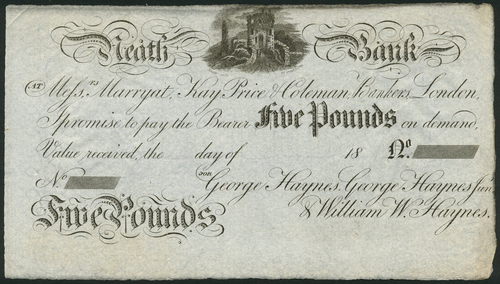 Neath Bank
AT Mess.rs Marryat, Kay Price & Coleman, Bankers, London,
I promise to pay the Bearer Five Pounds on demand,
Value received, the day of 18 No.
No. FOR George Haynes, George Haynes Junr.
Five Pounds & William W. Haynes.